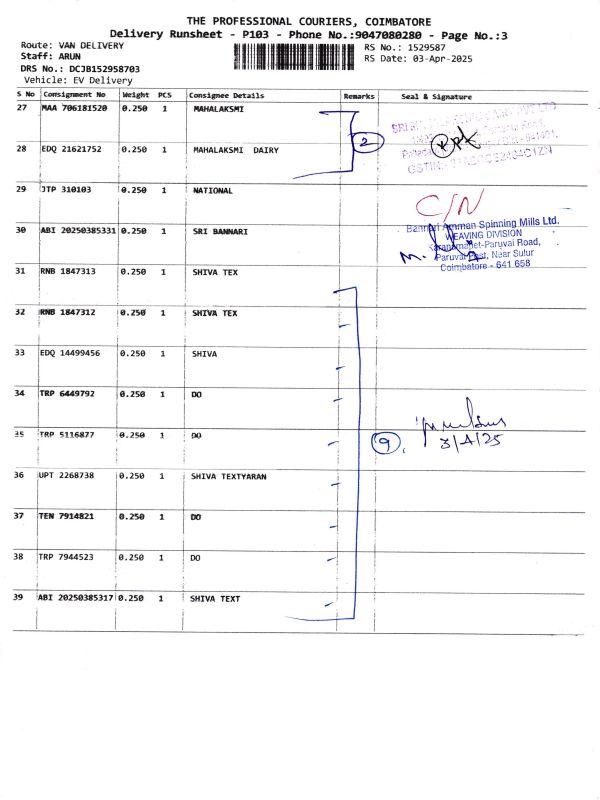 THE PROFESSIONAL COURIERS, COIMBATORE
Delivery Runsheet - P103 - Phone No.:9047080280 - Page No.:3
Route: VAN DELIVERY
RS No.: 1529587
Staff: ARUN
RS Date: 03-Apr-2025
DRS No.: DCJB152958703
Vehicle: EV Delivery
S No Consignment No Weight PCS Consignee Details Remarks Seal & Signature
27 MAA 706181520 0.250 1 MAHALAKSMI
2
28 EDQ 21621752 0.250 1 MAHALAKSMI DAIRY
29 JTP 310103 0.250 1 NATIONAL
C/N
30 ABI 20250385331 0.250 1 SRI BANNARI
Bannari Amman Spinning Mills Ltd.
WEAVING DIVISION
Karanampet-Paruvai Road,
Paruvai Post, Near Sulur
Coimbatore - 641 658
31 RNB 1847313 0.250 1 SHIVA TEX
32 RNB 1847312 0.250 1 SHIVA TEX
33 EDQ 14499456 0.250 1 SHIVA
34 TRP 6449792 0.250 1 DO
35 TRP 5116877 0.250 1 DO
9
3/4/25
36 UPT 2268738 0.250 1 SHIVA TEXTYARAN
37 TEN 7914821 0.250 1 DO
38 TRP 7944523 0.250 1 DO
39 ABI 20250385317 0.250 1 SHIVA TEXT